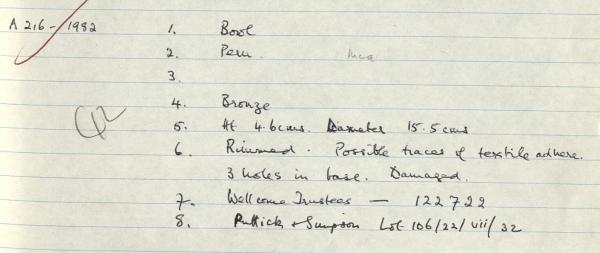 A 216-1982
1. Bowl
2. Peru. Inca
3.
4. Bronze
5. Ht 4.6cms. Diameter 15.5cms
6. Rimmed. Possible traces of textile adhere.
3 holes in base. Damaged.
7. Wellcome Trustees — 122722
8. Puttick + Simpson Lot 106/22/vii/32